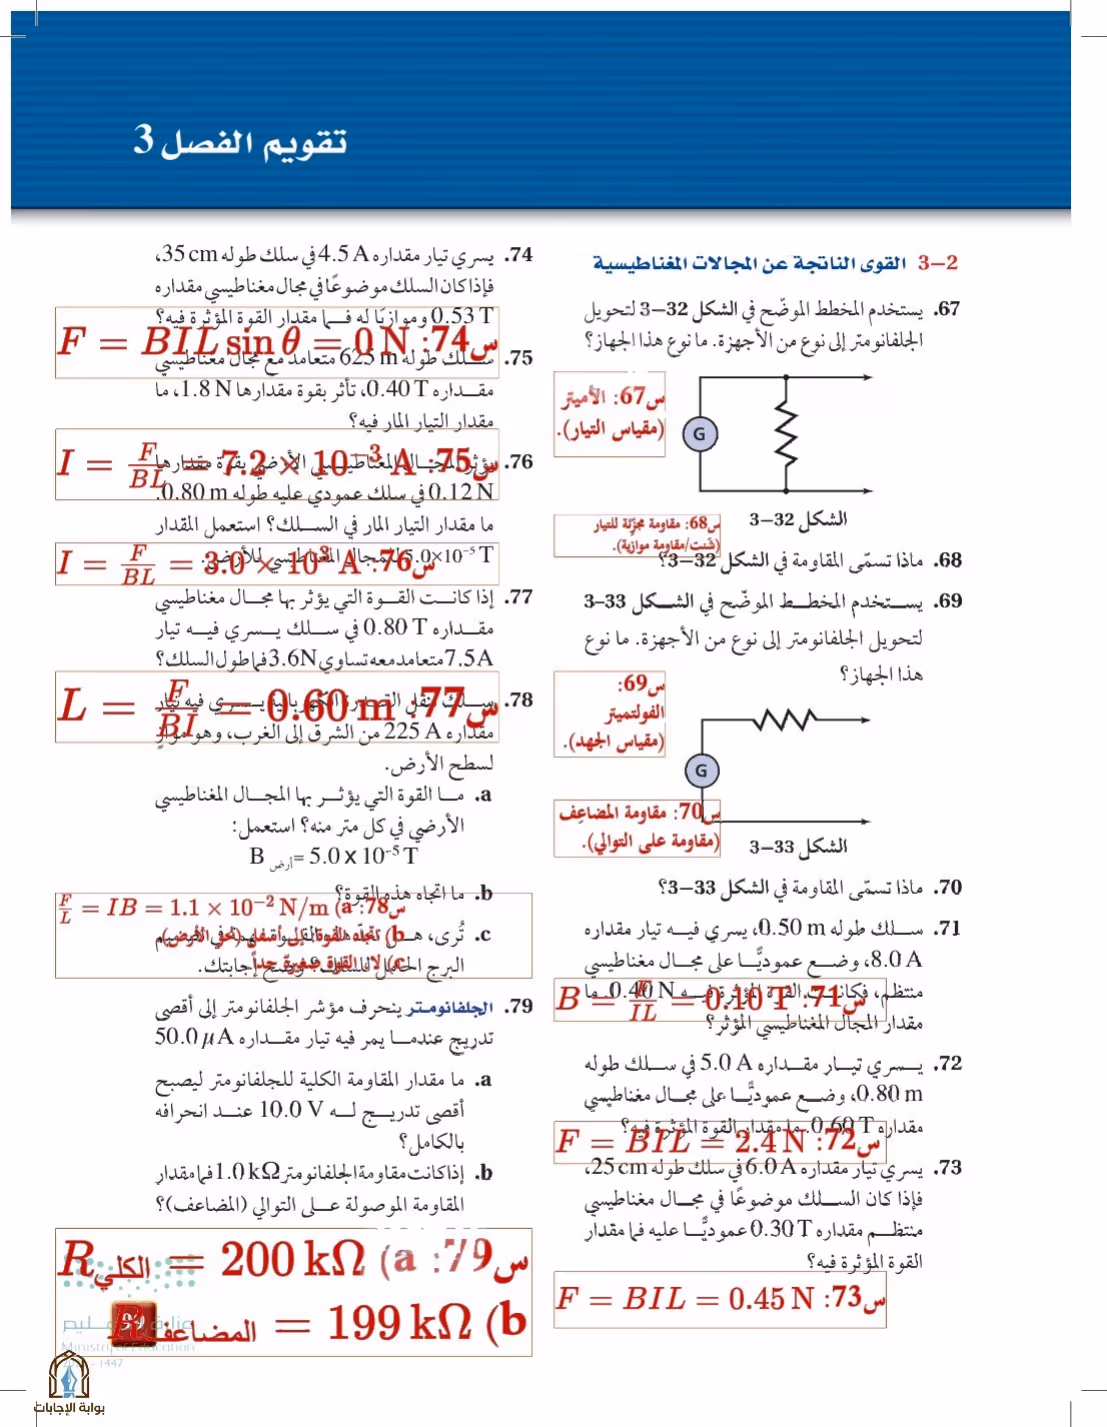 تقويم الفصل 3
3-2 القوى الناتجة عن المجالات المغناطيسية
67. يستخدم المخطط الموضّح في الشكل 32-3 لتحويل
الجلفانومتر إلى نوع من الأجهزة. ما نوع هذا الجهاز؟
س67: الأميتر
(مقياس التيار).
G
الشكل 32-3
س68: مقاومة مجزّئة للتيار
(شنت/مقاومة موازية).
68. ماذا تسمّى المقاومة في الشكل 32-3؟
69. يستخدم المخطط الموضّح في الشكل 33-3
لتحويل الجلفانومتر إلى نوع من الأجهزة. ما نوع
هذا الجهاز؟
س69:
الفولتميتر
(مقياس الجهد).
G
س70: مقاومة المضاعِف
(مقاومة على التوالي).
الشكل 33-3
70. ماذا تسمّى المقاومة في الشكل 33-3؟
71. سلك طوله 0.50 m، يسري فيه تيار مقداره
8.0 A، وضع عموديًّا على مجال مغناطيسي
منتظم، فكانت القوة المؤثرة فيه 0.40 N. ما
س71: B = F/IL = 0.10 T
مقدار المجال المغناطيسي المؤثر؟
72. يسري تيار مقداره 5.0 A في سلك طوله
0.80 m، وضع عموديًّا على مجال مغناطيسي
مقداره 0.60 T. ما مقدار القوة المؤثرة فيه؟
س72: F = BIL = 2.4 N
73. يسري تيار مقداره 6.0 A في سلك طوله 25 cm،
فإذا كان السلك موضوعًا في مجال مغناطيسي
منتظم مقداره 0.30 T عموديًّا عليه فما مقدار
القوة المؤثرة فيه؟
س73: F = BIL = 0.45 N
74. يسري تيار مقداره 4.5 A في سلك طوله 35 cm،
فإذا كان السلك موضوعًا في مجال مغناطيسي مقداره
0.53 T وموازيًا له فما مقدار القوة المؤثرة فيه؟
س74: F = BIL sin θ = 0 N
75. سلك طوله 625 m متعامد مع مجال مغناطيسي
مقداره 0.40 T، تأثر بقوة مقدارها 1.8 N، ما
مقدار التيار المار فيه؟
س75: I = F/BL = 7.2 × 10⁻³ A
76. يؤثر المجال المغناطيسي الأرضي بقوة مقدارها
0.12 N في سلك عمودي عليه طوله 0.80 m.
ما مقدار التيار المار في السلك؟ استعمل المقدار
5.0×10⁻⁵ T للمجال المغناطيسي للأرض.
س76: I = F/BL = 3.0 × 10³ A
77. إذا كانت القوة التي يؤثر بها مجال مغناطيسي
مقداره 0.80 T في سلك يسري فيه تيار
7.5 A متعامد معه تساوي 3.6 N فما طول السلك؟
س77: L = F/BI = 0.60 m
78. سلك لنقل القدرة الكهربائية يسري فيه تيار
مقداره 225 A من الشرق إلى الغرب، وهو موازٍ
لسطح الأرض.
a. ما القوة التي يؤثر بها المجال المغناطيسي
الأرضي في كل متر منه؟ استعمل:
B أرض = 5.0 x 10⁻⁵ T
b. ما اتجاه هذه القوة؟
س78: a) F/L = IB = 1.1 × 10⁻² N/m
c. تُرى، هل تعدّ هذه القوة مهمة في تصميم
b) اتجاه القوة: إلى أسفل (نحو الأرض).
البرج الحامل للسلك؟ وضح إجابتك.
c) لا؛ القوة صغيرة جداً.
79. الجلفانومتر ينحرف مؤشر الجلفانومتر إلى أقصى
تدريج عندما يمر فيه تيار مقداره 50.0 μA
a. ما مقدار المقاومة الكلية للجلفانومتر ليصبح
أقصى تدريج له 10.0 V عند انحرافه
بالكامل؟
b. إذا كانت مقاومة الجلفانومتر 1.0 kΩ فما مقدار
المقاومة الموصولة على التوالي (المضاعف)؟
س79: a) R الكلي = 200 kΩ
b) R المضاعف = 199 kΩ
Ministry of Education
1447
بوابة الإجابات